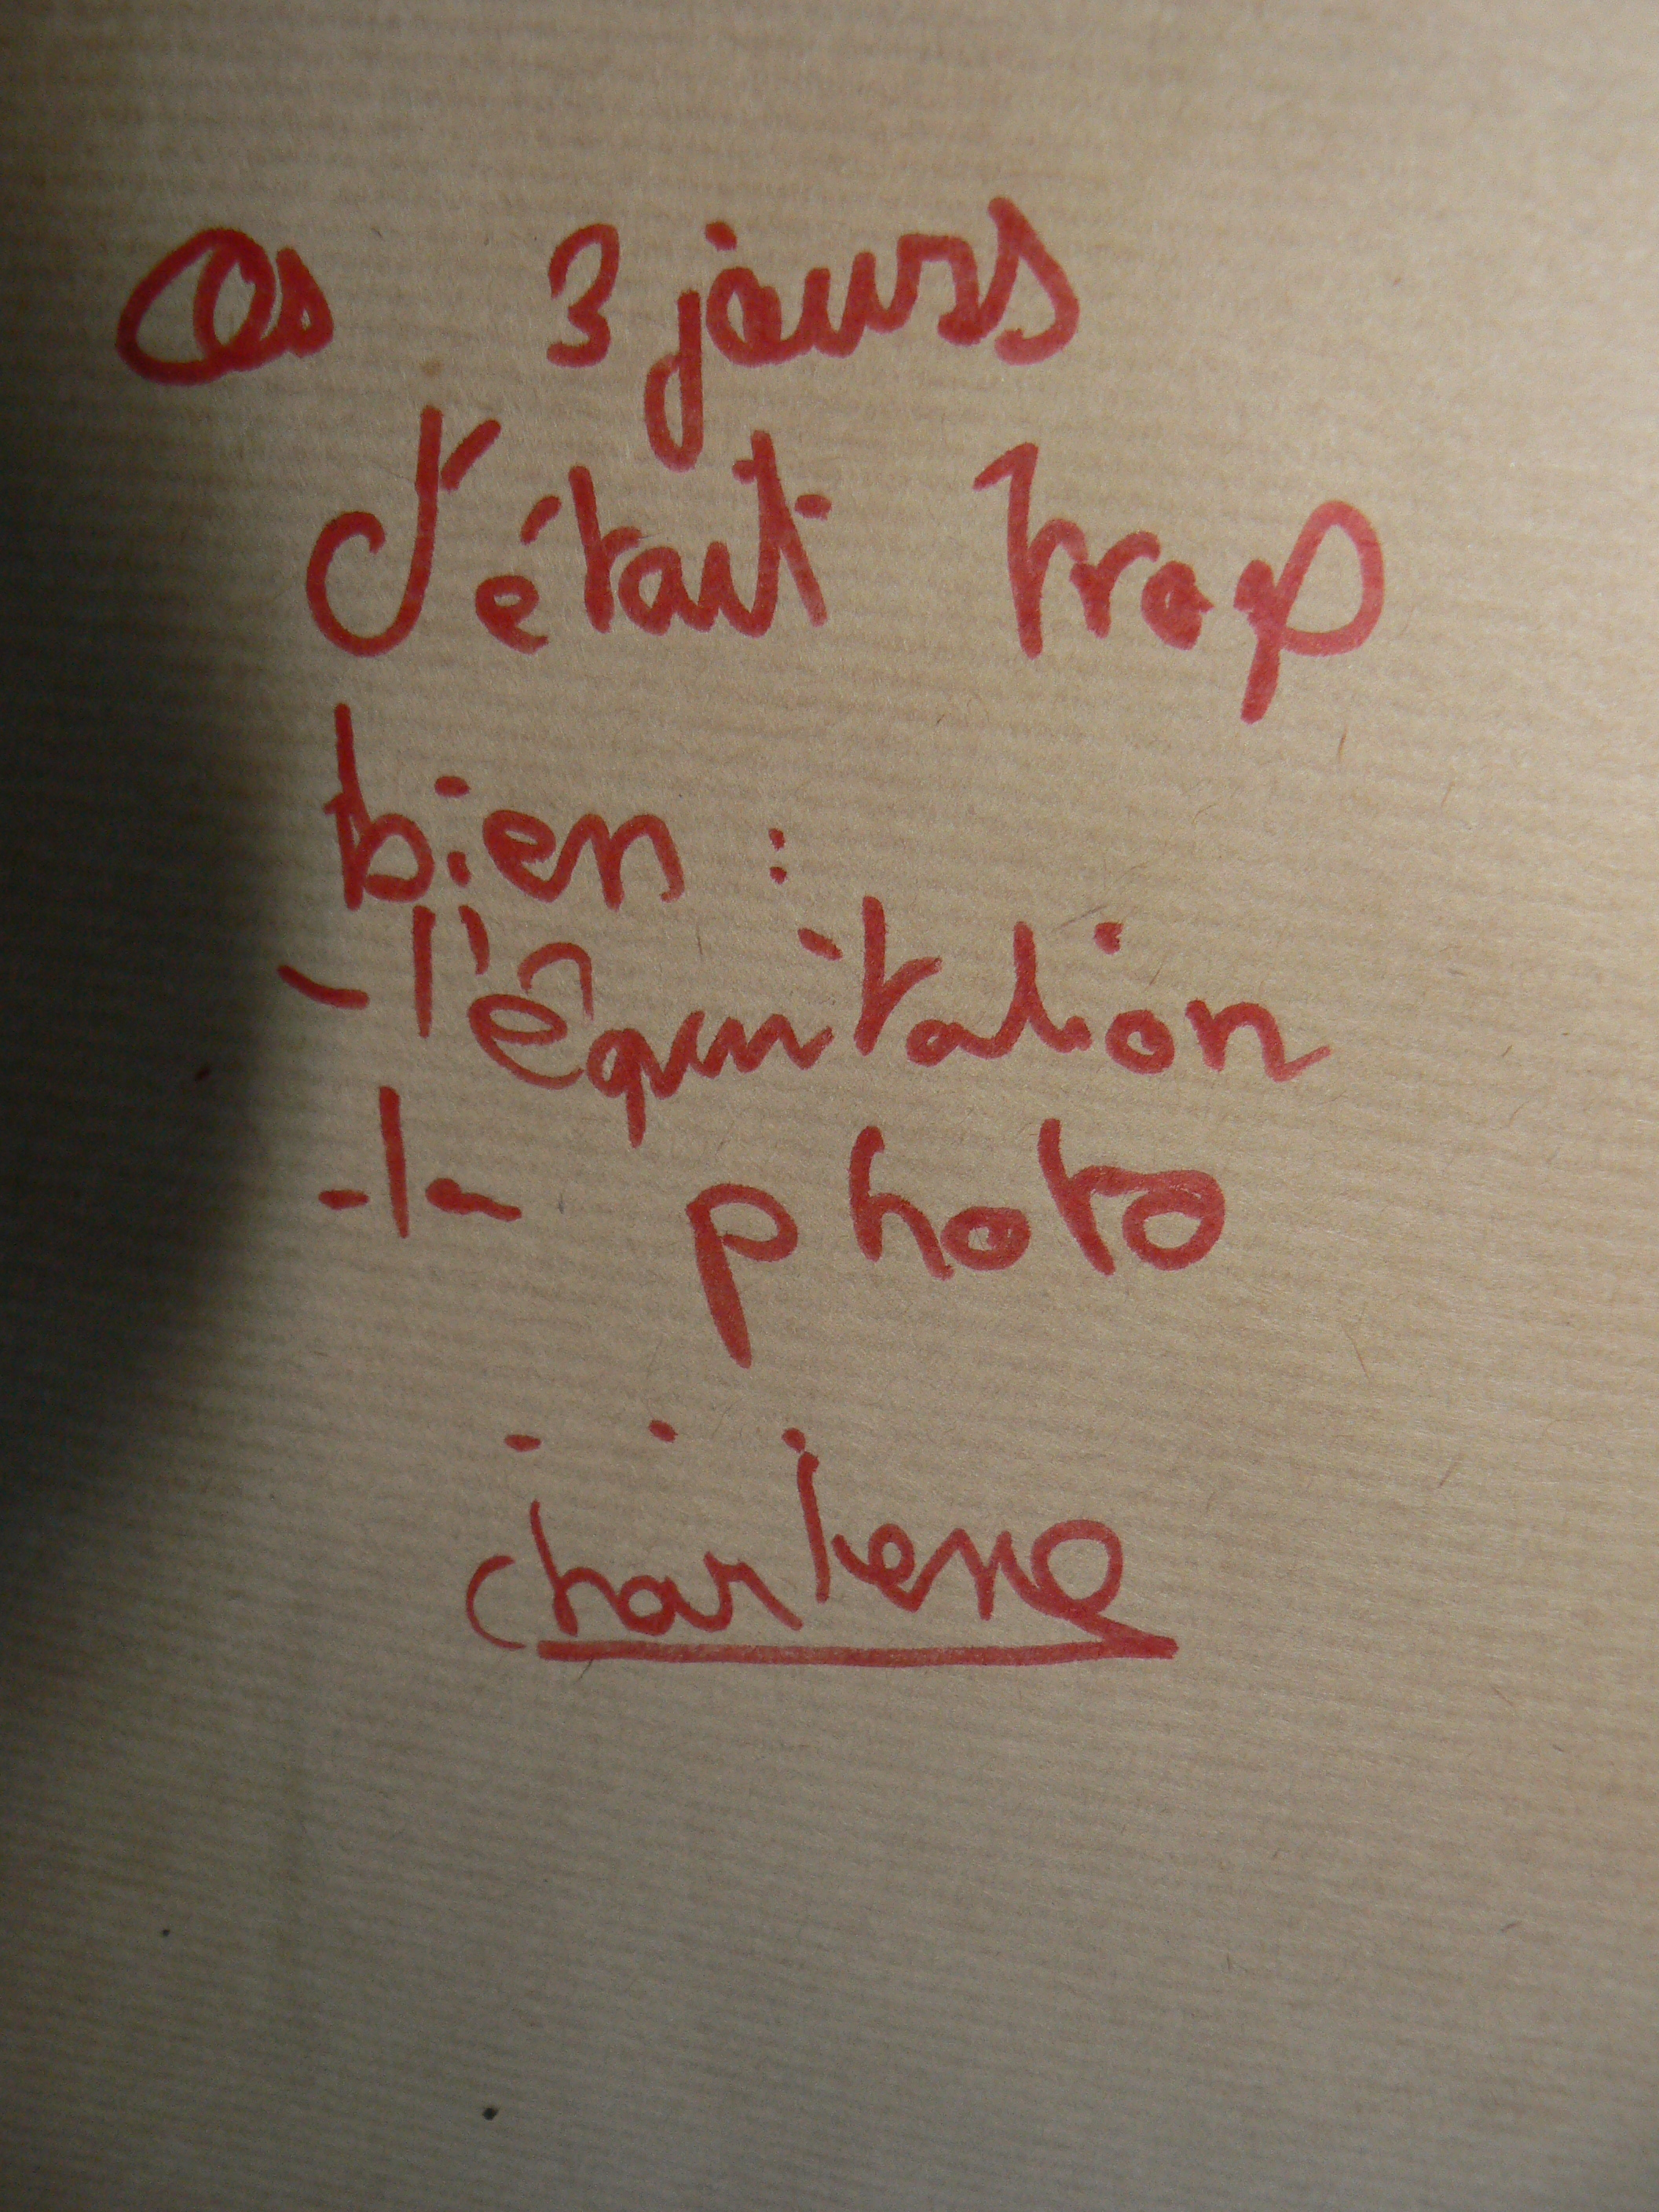 Ces 3 jours
c'était trop
bien :
- l'êquitation
- la photo
charlene